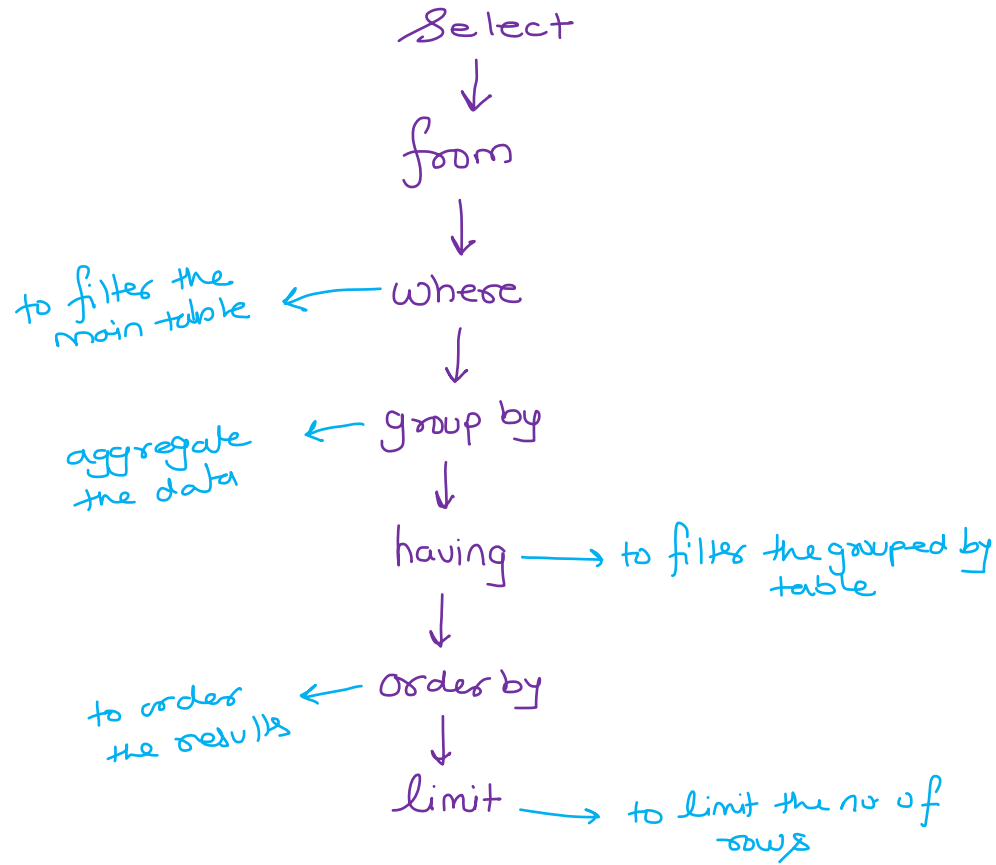 Select
from
where
to filter the
main table
group by
aggregate
the data
having
to filter the grouped by
table
order by
to order
the results
limit
to limit the no of
rows